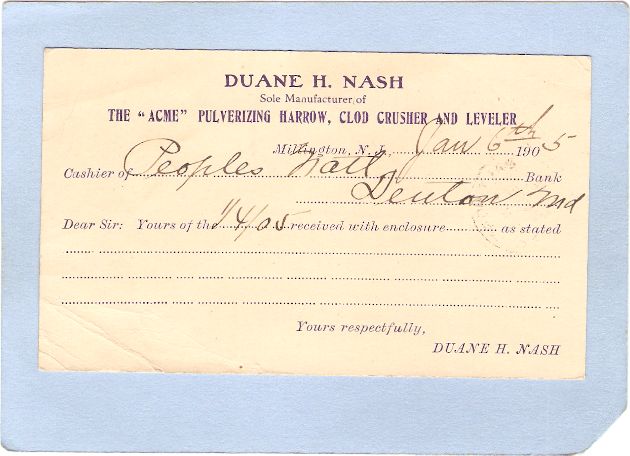 DUANE H. NASH
Sole Manufacturer of
THE "ACME" PULVERIZING HARROW, CLOD CRUSHER AND LEVELER
Millington, N. J. Jan 6th 1905
Cashier of Peoples Natl Bank
Denton Md
Dear Sir: Yours of the 1/4/05 received with enclosure as stated
Yours respectfully,
DUANE H. NASH